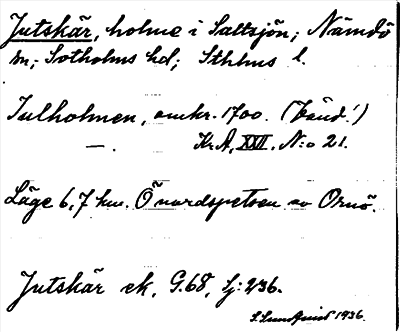 Jutskär, holme i Saltsjön; Nämdö
sn; Sotholms hd; Sthlms l.
Julholmen, omkr. 1700. (bänd!)
—. Kr. A, XXII, N:o 21.
Läge 6,7 km. Ö nordspetsen av Ornö.
Jutskär ek. G.68, Lj: 236.
S. Lundqvist 1936.